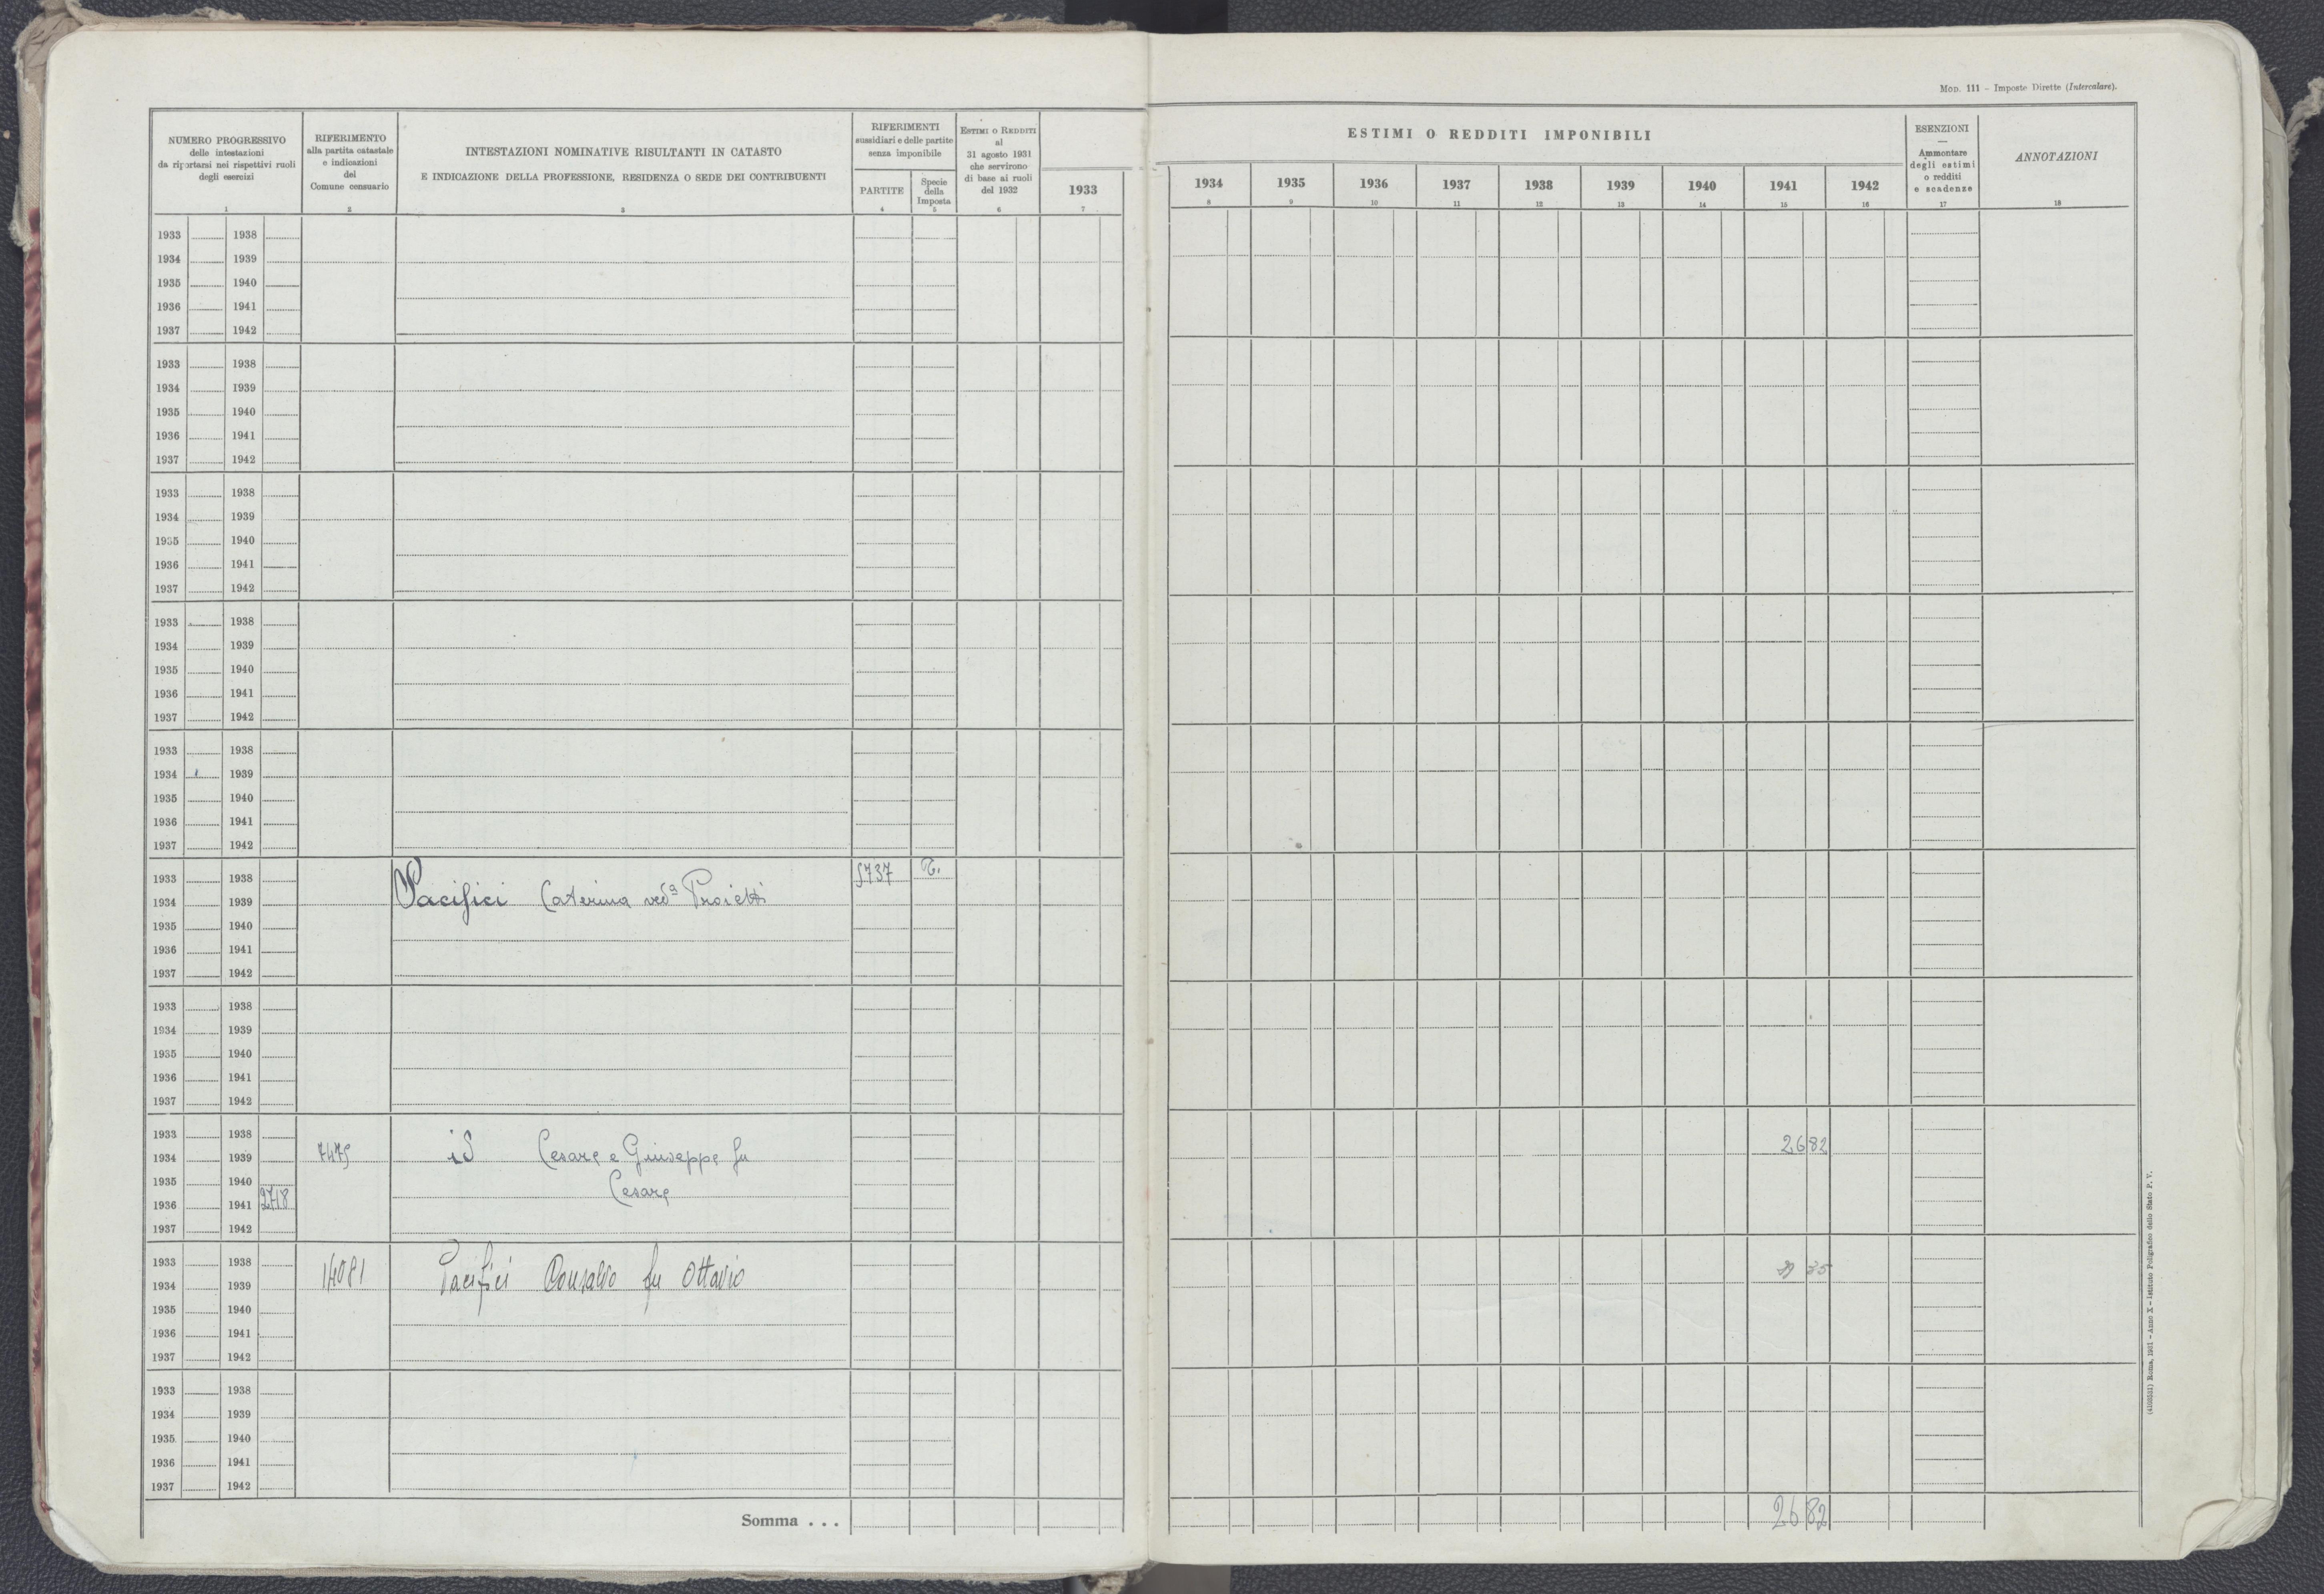 Mod. 111 - Imposte Dirette (Intercalare).
NUMERO PROGRESSIVO
delle intestazioni
da riportarsi nei rispettivi ruoli
degli esercizi
1
RIFERIMENTO
alla partita catastale
e indicazioni
del
Comune censuario
2
INTESTAZIONI NOMINATIVE RISULTANTI IN CATASTO
E INDICAZIONE DELLA PROFESSIONE, RESIDENZA O SEDE DEI CONTRIBUENTI
3
RIFERIMENTI
sussidiari e delle partite
senza imponibile
PARTITE
4
Specie
della
Imposta
5
ESTIMI O REDDITI
al
31 agosto 1931
che servirono
di base ai ruoli
del 1932
6
1933
7
ESTIMI O REDDITI IMPONIBILI
1934 1935 1936 1937 1938 1939 1940 1941 1942
8 9 10 11 12 13 14 15 16
ESENZIONI
—
Ammontare
degli estimi
o redditi
e scadenze
17
ANNOTAZIONI
18
1933 1938
1934 1939
1935 1940
1936 1941
1937 1942
1933 1938
1934 1939
1935 1940
1936 1941
1937 1942
1933 1938
1934 1939
1935 1940
1936 1941
1937 1942
1933 1938
1934 1939
1935 1940
1936 1941
1937 1942
1933 1938
1934 1939
1935 1940
1936 1941
1937 1942
1933 1938 5737 T.
1934 1939 Pacifici Caterina ved.ª Proietti
1935 1940
1936 1941
1937 1942
1933 1938
1934 1939
1935 1940
1936 1941
1937 1942
1933 1938 26 82
1934 1939 7475 id Cesare e Giuseppe fu
1935 1940 Cesare
1936 1941 2718
1937 1942
1933 1938 14081 Pacifici Consalvo fu Ottavio 35
1934 1939
1935 1940
1936 1941
1937 1942
1933 1938
1934 1939
1935 1940
1936 1941
1937 1942
Somma . . . 26 82
(4103531) Roma, 1931 - Anno X - Istituto Poligrafico dello Stato P. V.